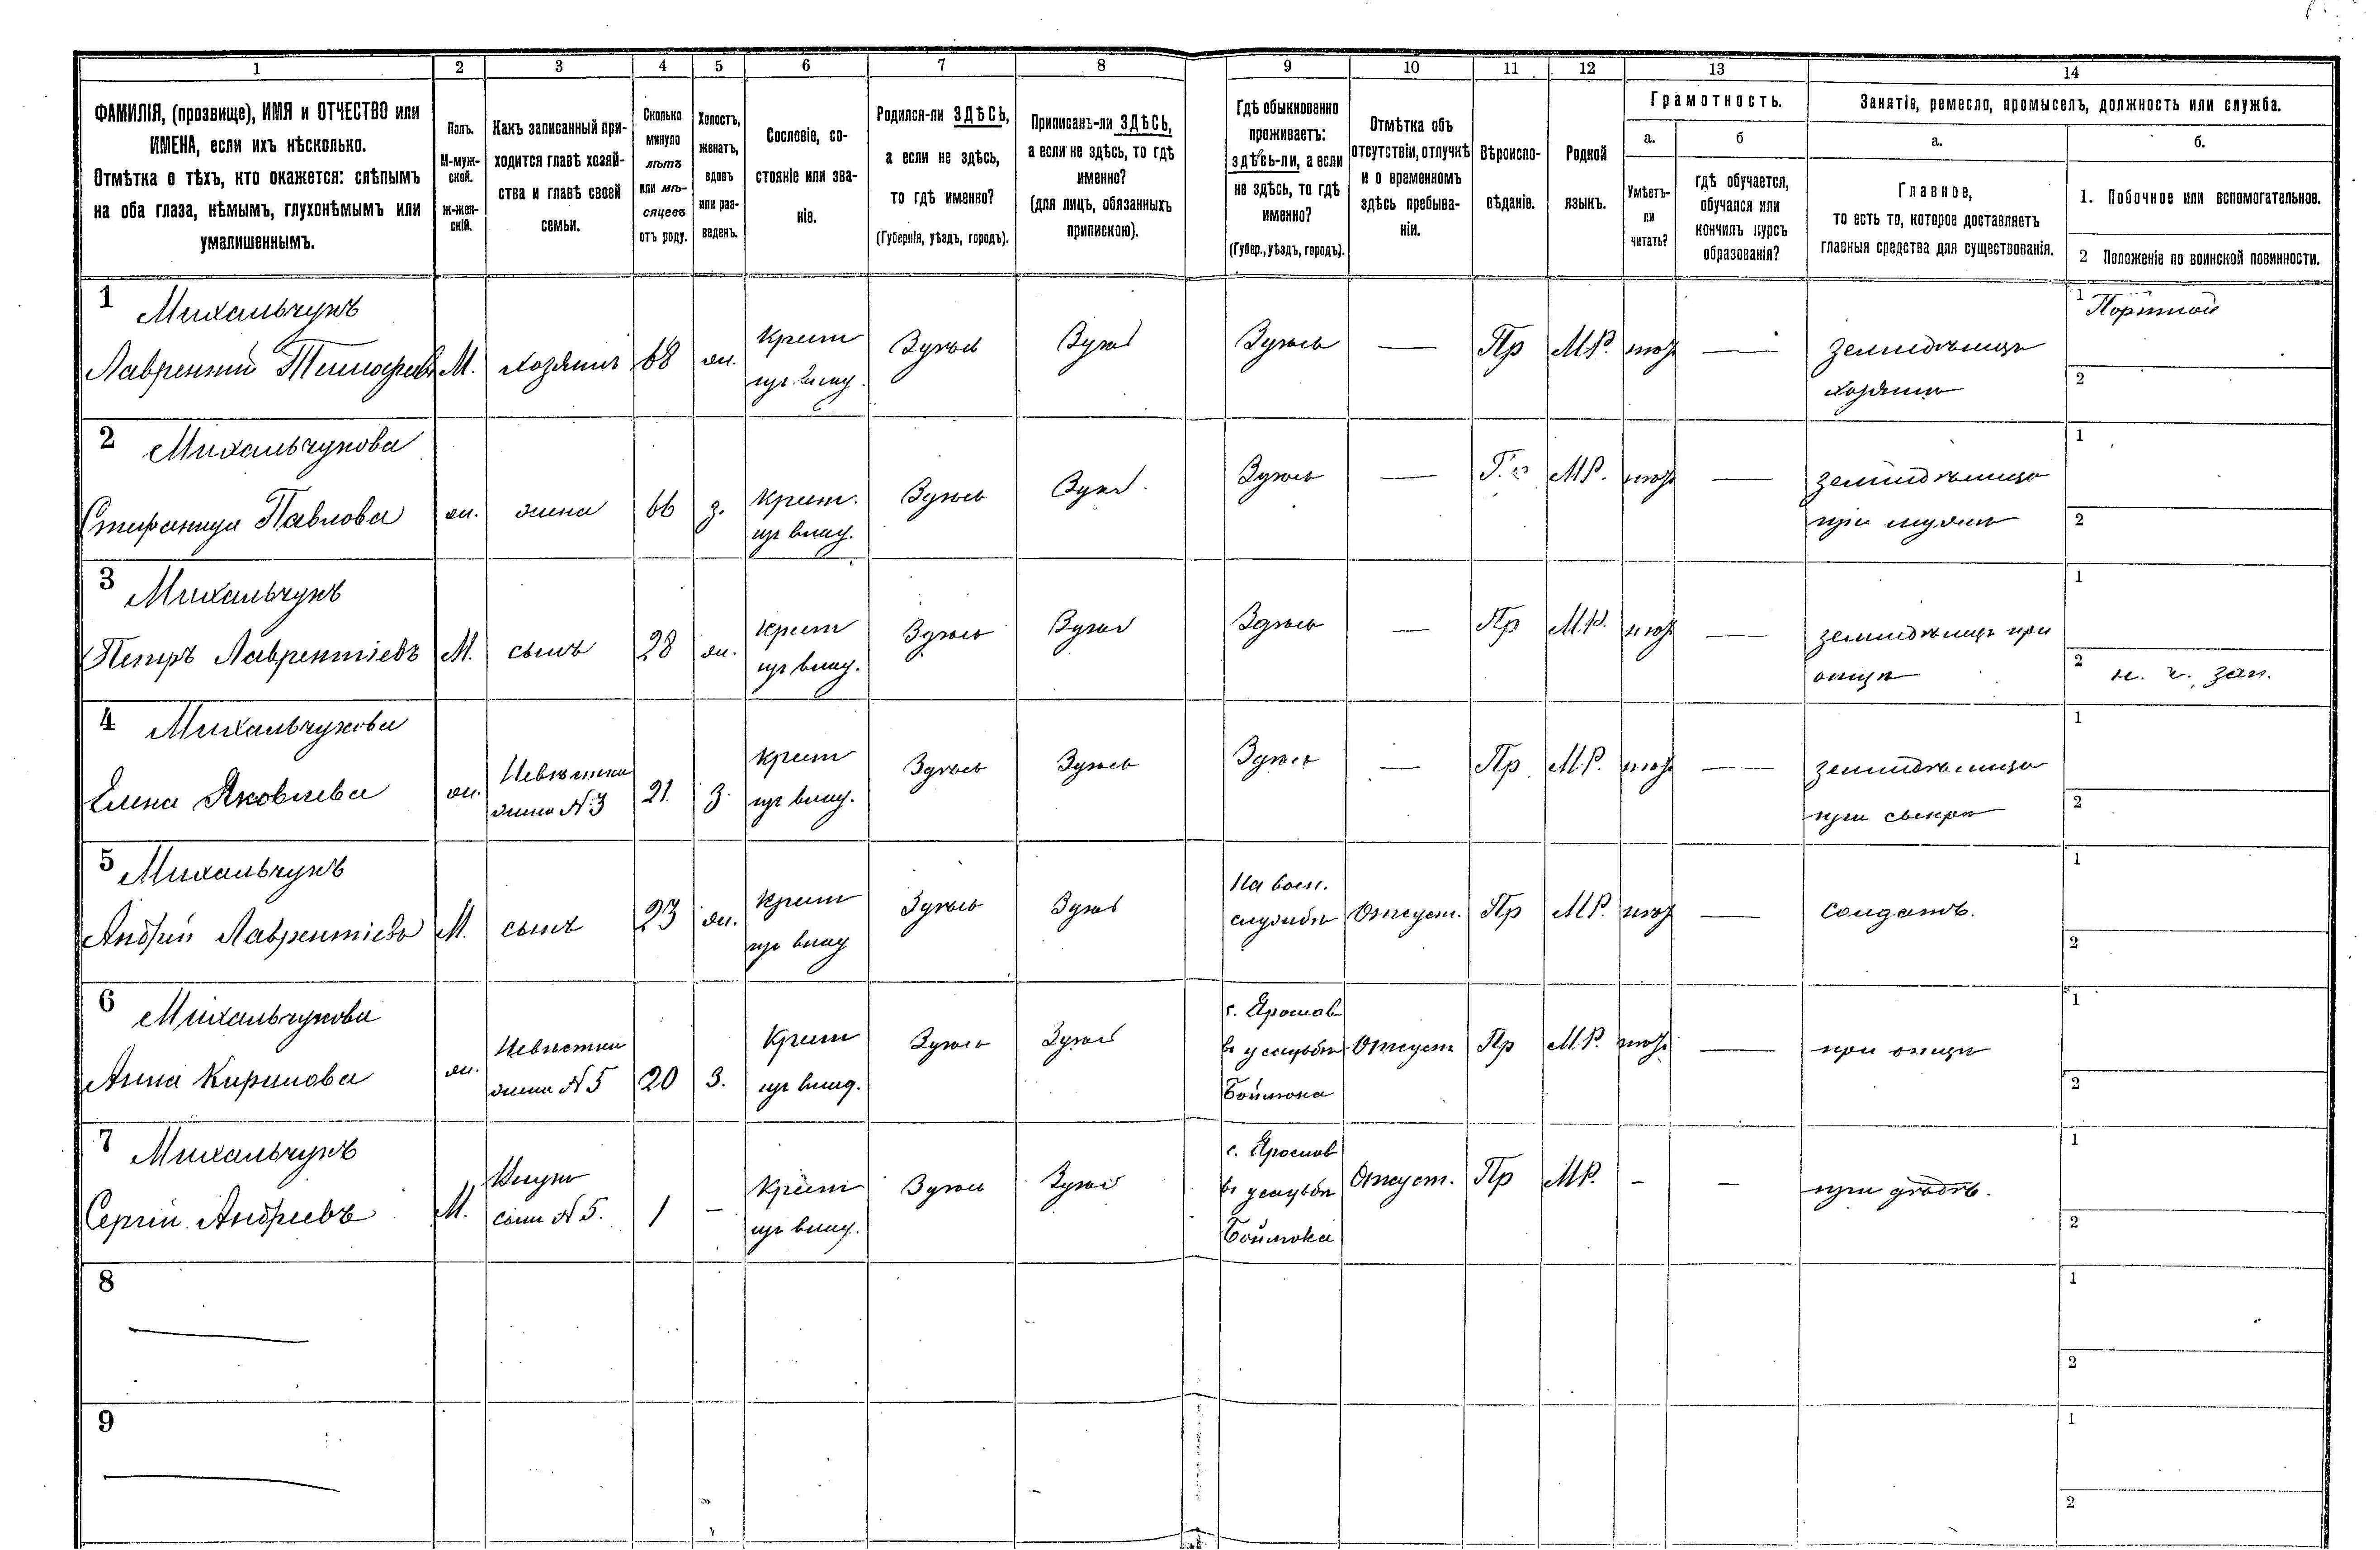 1 2 3 4 5 6 7 8 9 10 11 12 13 14
ФАМИЛІЯ, (прозвище), ИМЯ и ОТЧЕСТВО или
ИМЕНА, если ихъ нѣсколько.
Отмѣтка о тѣхъ, кто окажется: слѣпымъ
на оба глаза, нѣмымъ, глухонѣмымъ или
умалишеннымъ.
Полъ.
М-муж-
ской.
ж-жен-
скій.
Какъ записанный при-
ходится главѣ хозяй-
ства и главѣ своей
семьи.
Сколько
минуло
лѣтъ
или мѣ-
сяцевъ
отъ роду.
Холостъ,
женатъ,
вдовъ
или раз-
веденъ.
Сословіе, со-
стояніе или зва-
ніе.
Родился-ли ЗДѢСЬ,
а если не здѣсь,
то гдѣ именно?
(Губернія, уѣздъ, городъ).
Приписанъ-ли ЗДѢСЬ,
а если не здѣсь, то гдѣ
именно?
(для лицъ, обязанныхъ
припискою).
Гдѣ обыкновенно
проживаетъ:
здѣсь-ли, а если
не здѣсь, то гдѣ
именно?
(Губер., уѣздъ, городъ).
Отмѣтка объ
отсутствіи, отлучкѣ
и о временномъ
здѣсь пребыва-
ніи.
Вѣроиспо-
вѣданіе.
Родной
языкъ.
Грамотность.
а.
Умѣетъ-
ли
читать?
б
гдѣ обучается,
обучался или
кончилъ курсъ
образованія?
Занятіе, ремесло, промыселъ, должность или служба.
а.
Главное,
то есть то, которое доставляетъ
главныя средства для существованія.
б.
1. Побочное или вспомогательное.
2 Положеніе по воинской повинности.
1 Михальчукъ
Лаврентій М. хозяинъ 68 ж. Крест Здѣсь Здѣсь Здѣсь — Пр М.Р. — земледѣлецъ
хозяинъ
1 Портной
2
2 Михальчукова
Павлова ж. жена 66 з. Крест. Здѣсь Здѣсь Здѣсь — М.Р. — земледѣлица
при мужѣ
1
2
3 Михальчукъ
Петръ Лаврентіевъ М. сынъ 28 ж. крест Здѣсь Здѣсь Здѣсь — Пр М.Р. — земледѣлецъ при
отцѣ
1
2 н. ч. зап.
4 Михальчукова
Елена Яковлева ж. Невѣстка
жена №3 21. з. крест Здѣсь Здѣсь Здѣсь — Пр М.Р. — земледѣлица
при свекрѣ
1
2
5 Михальчукъ
Андрій Лаврентіевъ М. сынъ 23 ж. Крест Здѣсь Здѣсь На воен.
службѣ Отсуст. Пр М.Р. — солдатъ.
1
2
6 Михальчукова
Анна Кирилова ж. Невѣстка
жена №5 20 з. Крест Здѣсь Здѣсь
въ усадьбѣ Отсуст Пр М.Р. — при отцѣ
1
2
7 Михальчукъ
Сергій Андреевъ М. Внукъ
сынъ №5. 1 — Крест Здѣсь Здѣсь
въ усадьбѣ Отсуст. Пр М.Р. - — при дѣдѣ.
1
2
8
1
2
9
1
2